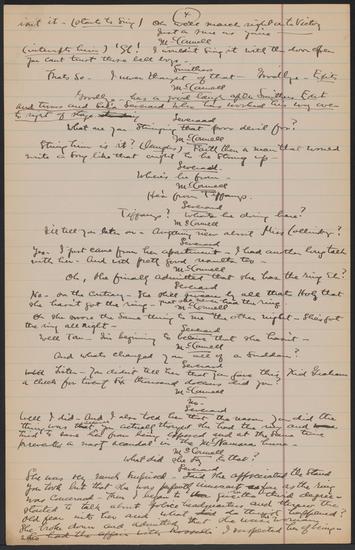 4
isn't it - (starts to sing) Oh we'll march right on to Victory
Just as sure as you're -
McConnell
(interrupts him) 'SH! I wouldn't sing it with the door open
You cant trust these bell boys -
Smithers
Thats So - I never thought of that - Goodbye - Exits
McConnell
Goodbye - has a good laugh after Smithers Exit
and turns and Severead who has worked his way over
to right of stage
Severead
What are you Stringing that poor devil for?
McConnell
String him is it? (laughs) Faith then a man that would
write a song like that ought to be strung up -
Severead
Where's he from -
McConnell
He's from Tiffanys.
Severead
Tiffanys? What's he doing here?
McConnell
I'll tell you later on - Anything new about Miss
Severead
Yes - I just came from her apartment - I had another long talk
with her - And with pretty good results too -
McConnell
Oh, She finally admitted that she has the ring Eh?
Severead
No - on the contrary - She still swears by all that Holy that
she hasn't got the ring
McConnell
Oh she swore the same thing to me the other night - She's got
the ring all right -
Severead
Well Tom - I'm beginning to believe that she hasn't -
McConnell
And whats changed you all of a Sudden?
Severead
Well Listen - You didn't tell her that you gave this Kid Graham
a check for twenty six thousand dollars did you?
McConnell
No -
Severead
Well I did - And I also told her that the reason you did the
thing was that you actually thought she had the ring and
tried to save her from being exposed and at the same time
prevent a nasty scandal in the McNamara home -
McConnell
What did she say to that?
Severead
She was very much surprised - Said she appreciated the stand
you took but that she was perfectly innocent as far as the ring
was concerned - Then I began to give the third degree -
started to talk about police headquarters - and the
old fear into her and what happened?
She broke down and admitted that she